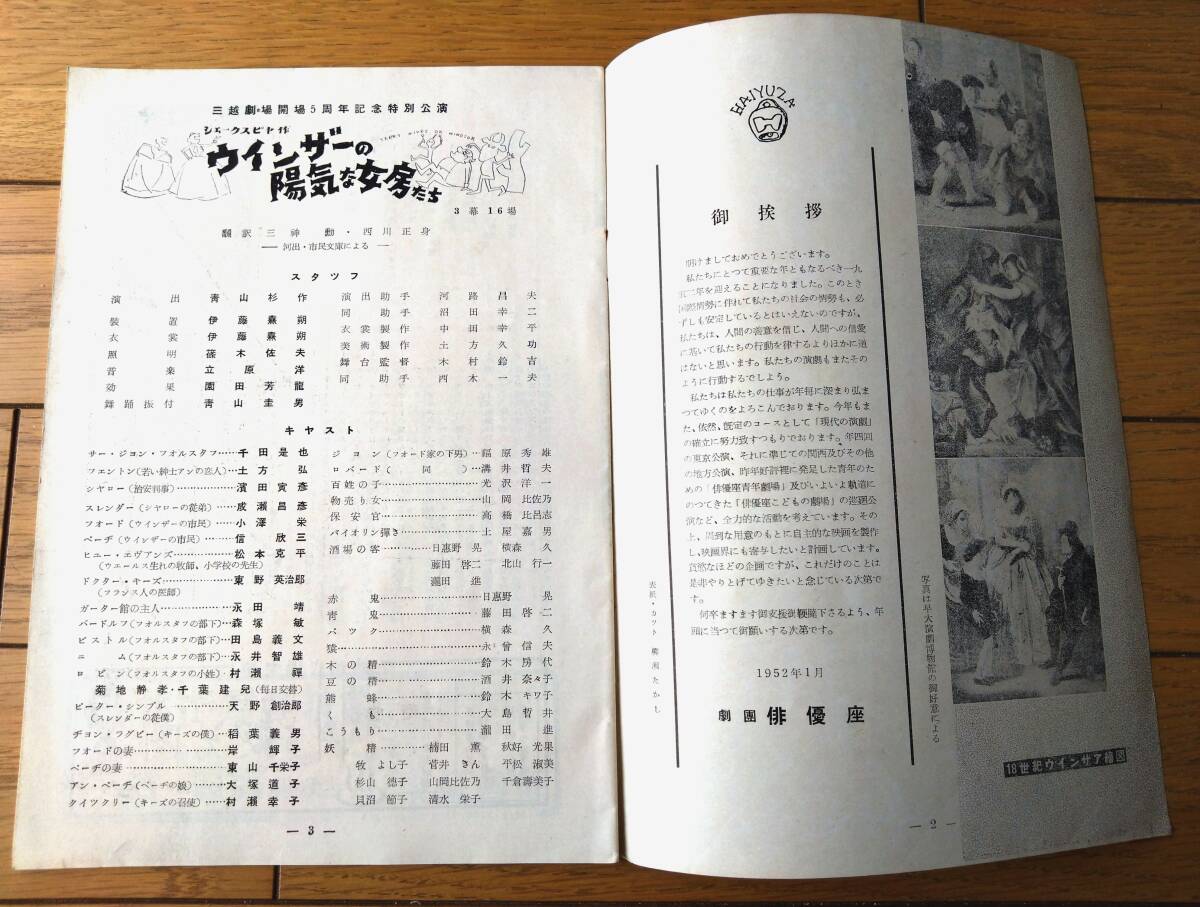 三越劇場開場5周年記念特別公演
シェークスピヤ作
MERRY WIVES OF WINDSOR
ウインザーの
陽気な女房たち
3幕16場
翻訳 三神勲・西川正身
── 河出・市民文庫による ──
スタツフ
演出 青山杉作
裝置 伊藤熹朔
衣裳 伊藤熹朔
照明 篠木佐夫
音楽 立原洋
効果 園田芳龍
舞踊振付 青山圭男
演出助手 河路昌夫
同助手 沼田幸二
衣裳製作 中田幸平
美術製作 土方久功
舞台監督 木村鈴吉
同助手 西木一夫
キヤスト
サー・ジョン・フォルスタフ……千田是也
フェントン(若い紳士アンの恋人)…土方弘
シヤロー(治安判事)……濱田寅彦
スレンダー(シヤローの従弟)…成瀬昌彦
フォード(ウインザーの市民)…小澤栄
ペーヂ(ウインザーの市民)……信欣三
ヒュー・エヴアンズ……松本克平
(ウエールス生れの牧師、小学校の先生)
ドクター・キーズ……東野英治郎
(フランス人の医師)
ガーター館の主人……永田靖
バードルフ(フォルスタフの部下)…森塚敏
ピストル(フォルスタフの部下)…田島義文
ニム(フォルスタフの部下)…永井智雄
ロビン(フォルスタフの小姓)…村瀬禪
菊地静孝・千葉建兒(毎日交替)
ピーター・シンプル……天野創治郎
(スレンダーの従僕)
ヂョン・ラグビー(キーズの僕)…稻葉義男
フオードの妻……岸輝子
ペーヂの妻……東山千栄子
アン・ペーヂ(ペーヂの娘)……大塚道子
クイツクリー(キーズの召使)……村瀬幸子
ジョン(フォード家の下男)…稲原秀雄
ロバート(同)…溝井哲夫
百姓の子……光沢洋一
物売り女……山岡比佐乃
保安官……高橋比呂志
バイオリン彈き……土屋嘉男
酒場の客……日惠野晃 横森久
藤田啓二 北山行一
瀧田進
赤鬼……日惠野晃
青鬼……藤田啓二
パツク……横森久
猿……永曾信夫
木の精……鈴木房代
豆の精……酒井奈々子
熊蜂……鈴木キワ子
くも……大島哲井
こうもり……瀧田進
妖精……楠田薫 秋好光果
牧よし子 菅井きん 平松淑美
杉山徳子 山岡比佐乃 千倉壽美子
貝沼節子 清水栄子
― 3 ―
HAIYUZA
御挨拶
明けましておめでとうございます。
私たちにとつて重要な年ともなるべき一九
五二年を迎えることになりました。このとき
国際情勢に伴れて私たちの社会の情勢も、必
ずしも安定しているとはいえないのですが、
私たちは、人間の善意を信じ、人間への信愛
に基いて私たちの行動を律するよりほかに道
はないと思います。私たちの演劇もまたその
ように行動するでしよう。
私たちは私たちの仕事が年毎に深まり弘ま
つてゆくのをよろこんでおります。今年もま
た、依然、既定のコースとして「現代の演劇」
の確立に努力致すつもりでおります。年四回
の東京公演、それに準じての関西及びその他
の地方公演、昨年好評裡に発足した青年のた
めの「俳優座青年劇場」及びいよいよ軌道に
のつてきた「俳優座こどもの劇場」の巡廻公
演など、全力的な活動を考えています。その
上、周到な用意のもとに自主的な映画を製作
し、映画界にも寄与したいと計画しています。
貪慾なほどの企画ですが、これだけのことは
是非やりとげてゆきたいと念じている次第で
す。
何卒ますます御支援御鞭撻下さるよう、年
頭に当つて御願いする次第です。
1952年1月
劇團 俳優座
表紙・カツト たかし
写真は早大演劇博物館の御好意による
18世紀ウインザア繪図
― 2 ―